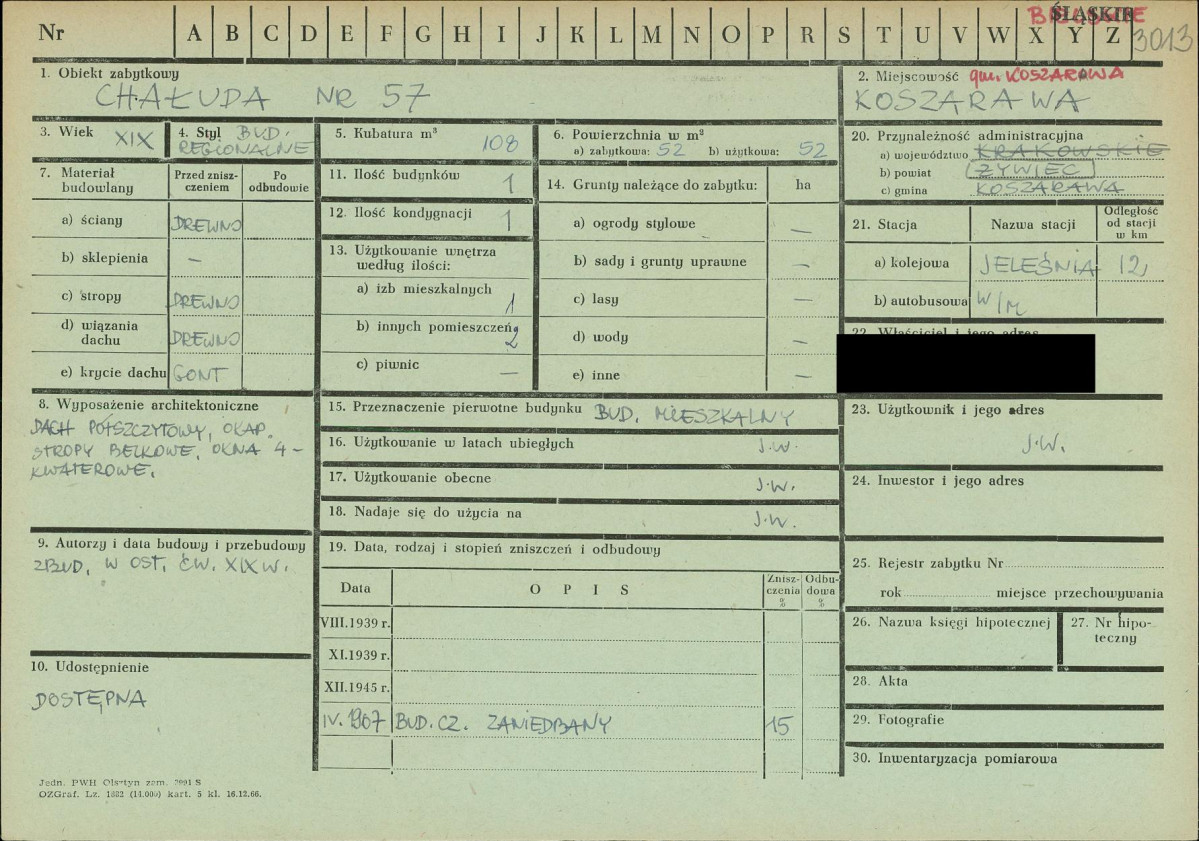 Nr A B C D E F G H I J K L M N O P R S T U V W X Y Z
ŚLĄSKIE
3013
1. Obiekt zabytkowy
CHAŁUDA NR 57
2. Miejscowość gm. KOSZARAWA
KOSZARAWA
3. Wiek XIX
4. Styl BUD.
REGIONALNE
5. Kubatura m³
108
6. Powierzchnia w m²
a) zabytkowa: 52 b) użytkowa: 52
20. Przynależność administracyjna
a) województwo KRAKOWSKIE
b) powiat ŻYWIEC
c) gmina KOSZARAWA
7. Materiał budowlany
Przed znisz-
czeniem
Po
odbudowie
a) ściany DREWNO
b) sklepienia —
c) stropy DREWNO
d) wiązania
dachu DREWNO
e) krycie dachu GONT
11. Ilość budynków 1
12. Ilość kondygnacji 1
13. Użytkowanie wnętrza
według ilości:
a) izb mieszkalnych
1
b) innych pomieszczeń
2
c) piwnic —
14. Grunty należące do zabytku: ha
a) ogrody stylowe —
b) sady i grunty uprawne —
c) lasy —
d) wody —
e) inne —
21. Stacja Nazwa stacji
Odległość
od stacji
w km
a) kolejowa JELEŚNIA 12
b) autobusowa W/M
22. Właściciel i jego adres
8. Wyposażenie architektoniczne
DACH PÓŁSZCZYTOWY, OKAP.
STROPY BELKOWE, OKNA 4-
KWATEROWE.
15. Przeznaczenie pierwotne budynku BUD. MIESZKALNY
16. Użytkowanie w latach ubiegłych J.W.
17. Użytkowanie obecne J.W.
18. Nadaje się do użycia na J.W.
23. Użytkownik i jego adres
J.W.
24. Inwestor i jego adres
9. Autorzy i data budowy i przebudowy
ZBUD. W OST. ĆW. XIX W.
19. Data, rodzaj i stopień zniszczeń i odbudowy
Data O P I S
Znisz-
czenia
%
Odbu-
dowa
%
VIII.1939 r.
XI.1939 r.
XII.1945 r.
IV. 1967 BUD. CZ. ZANIEDBANY 15
10. Udostępnienie
DOSTĘPNA
25. Rejestr zabytku Nr
rok miejsce przechowywania
26. Nazwa księgi hipotecznej
27. Nr hipo-
teczny
28. Akta
29. Fotografie
30. Inwentaryzacja pomiarowa
Jedn. PWH Olsztyn zam. 2991 S
OZGraf. Lz. 1882 (14.000) kart. 5 kl. 16.12.66.